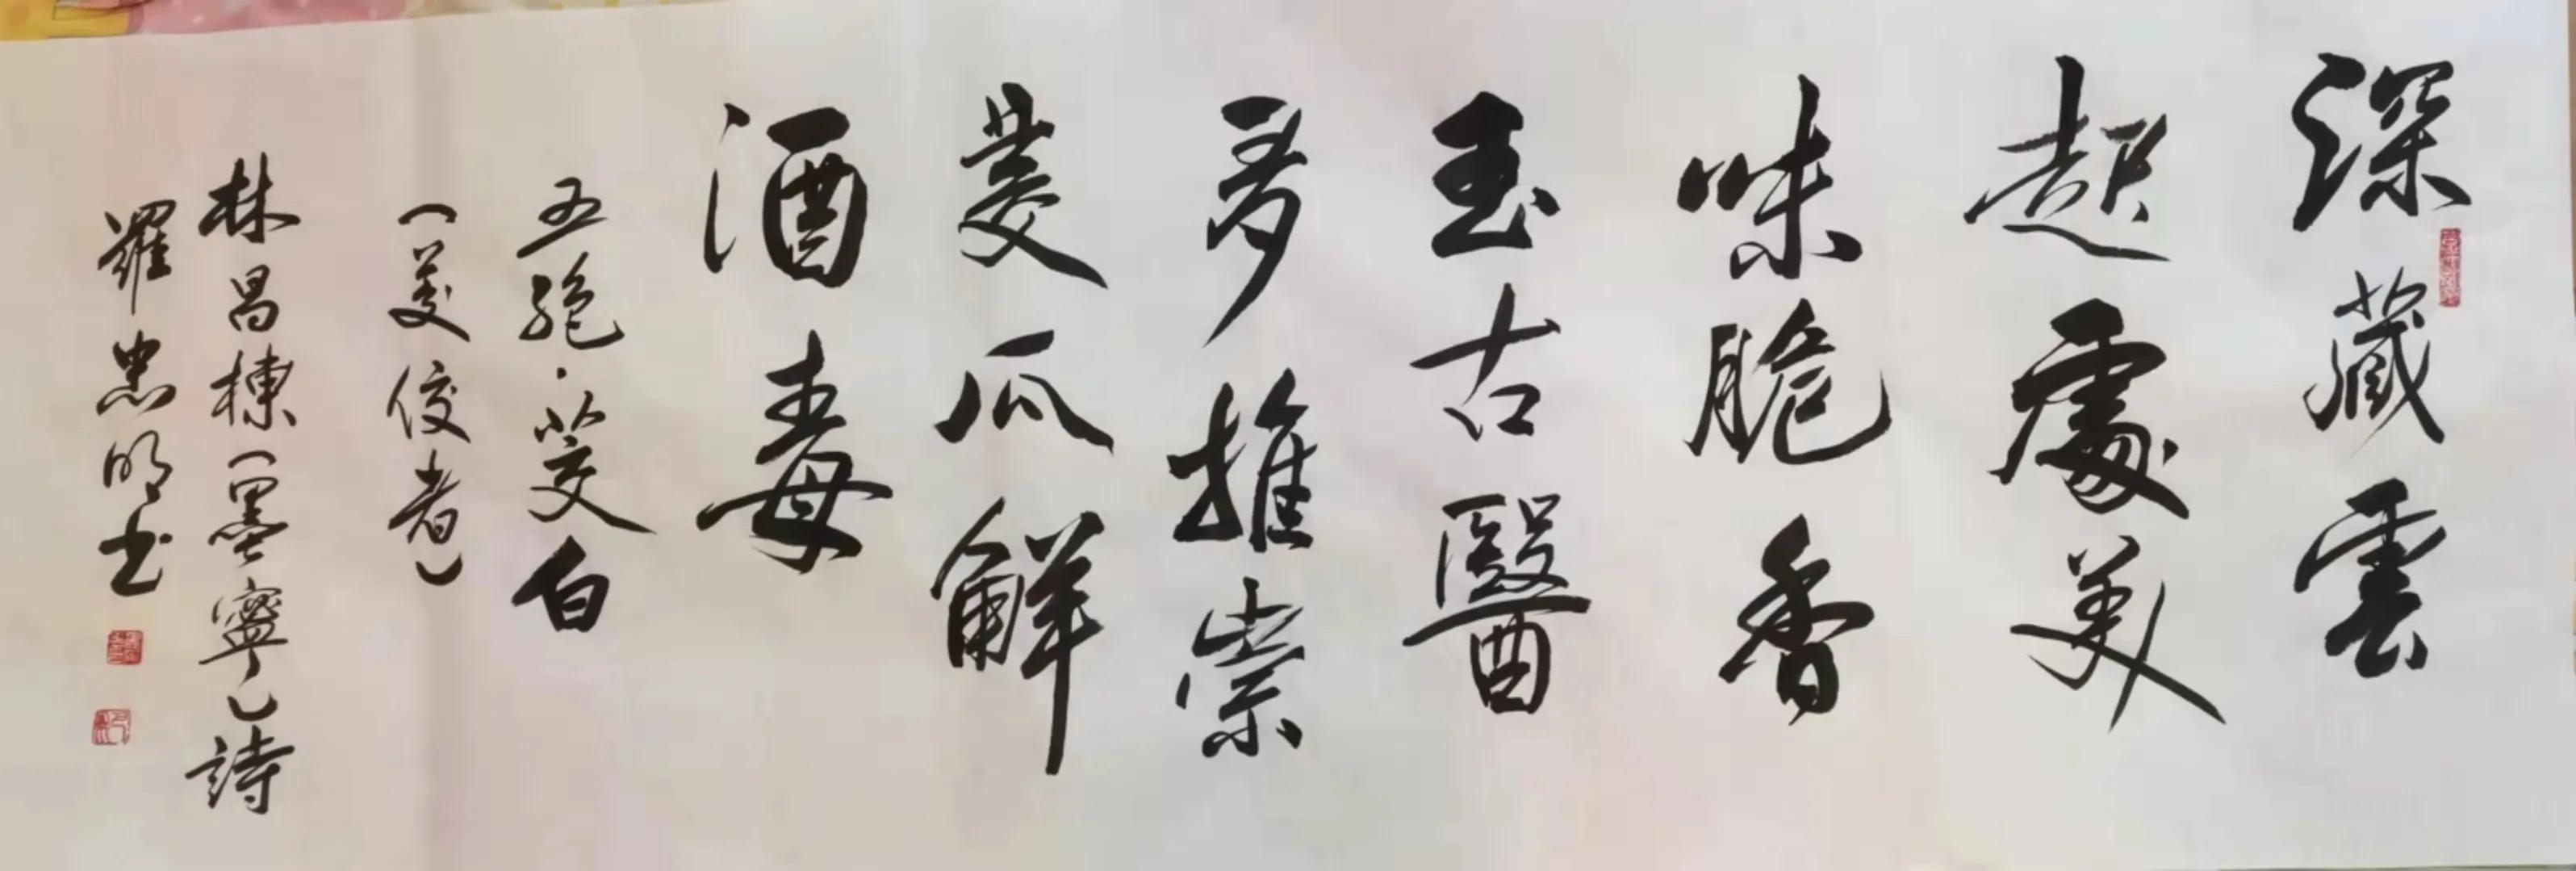 深藏雲
起處美
味脆香
玉古醫
多推崇
茭瓜觧
酒毒
五絕·茭白
(茭佼者)
林昌棟(墨寧)詩
羅忠明书